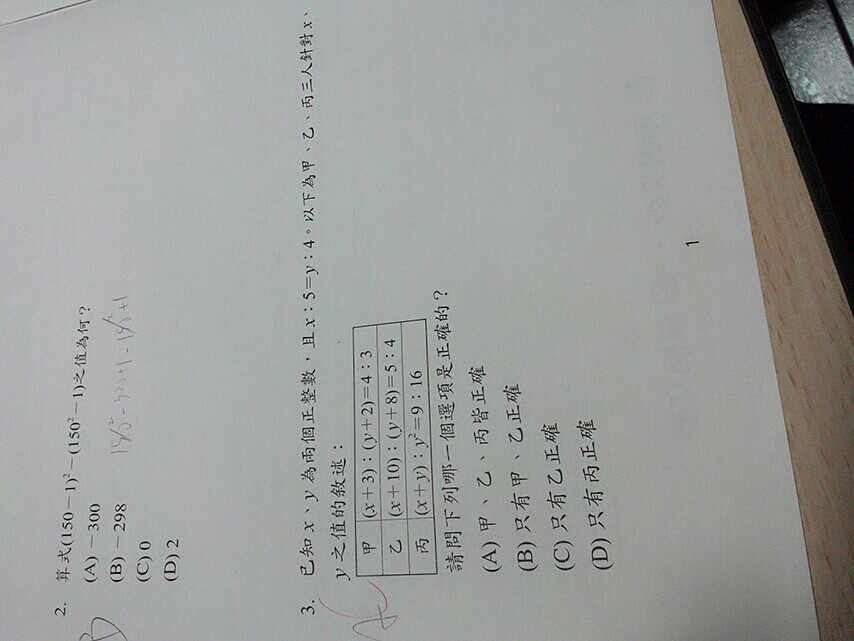 2. 算式(150－1)²－(150²－1)之值為何？
(A)－300
(B)－298
(C) 0
(D) 2
3. 已知 x、y 為兩個正整數，且 x：5＝y：4。以下為甲、乙、丙三人針對 x、
y 之值的敘述：
甲 (x＋3)：(y＋2)＝4：3
乙 (x＋10)：(y＋8)＝5：4
丙 (x＋y)：y²＝9：16
請問下列哪一個選項是正確的？
(A) 甲、乙、丙皆正確
(B) 只有甲、乙正確
(C) 只有乙正確
(D) 只有丙正確
1